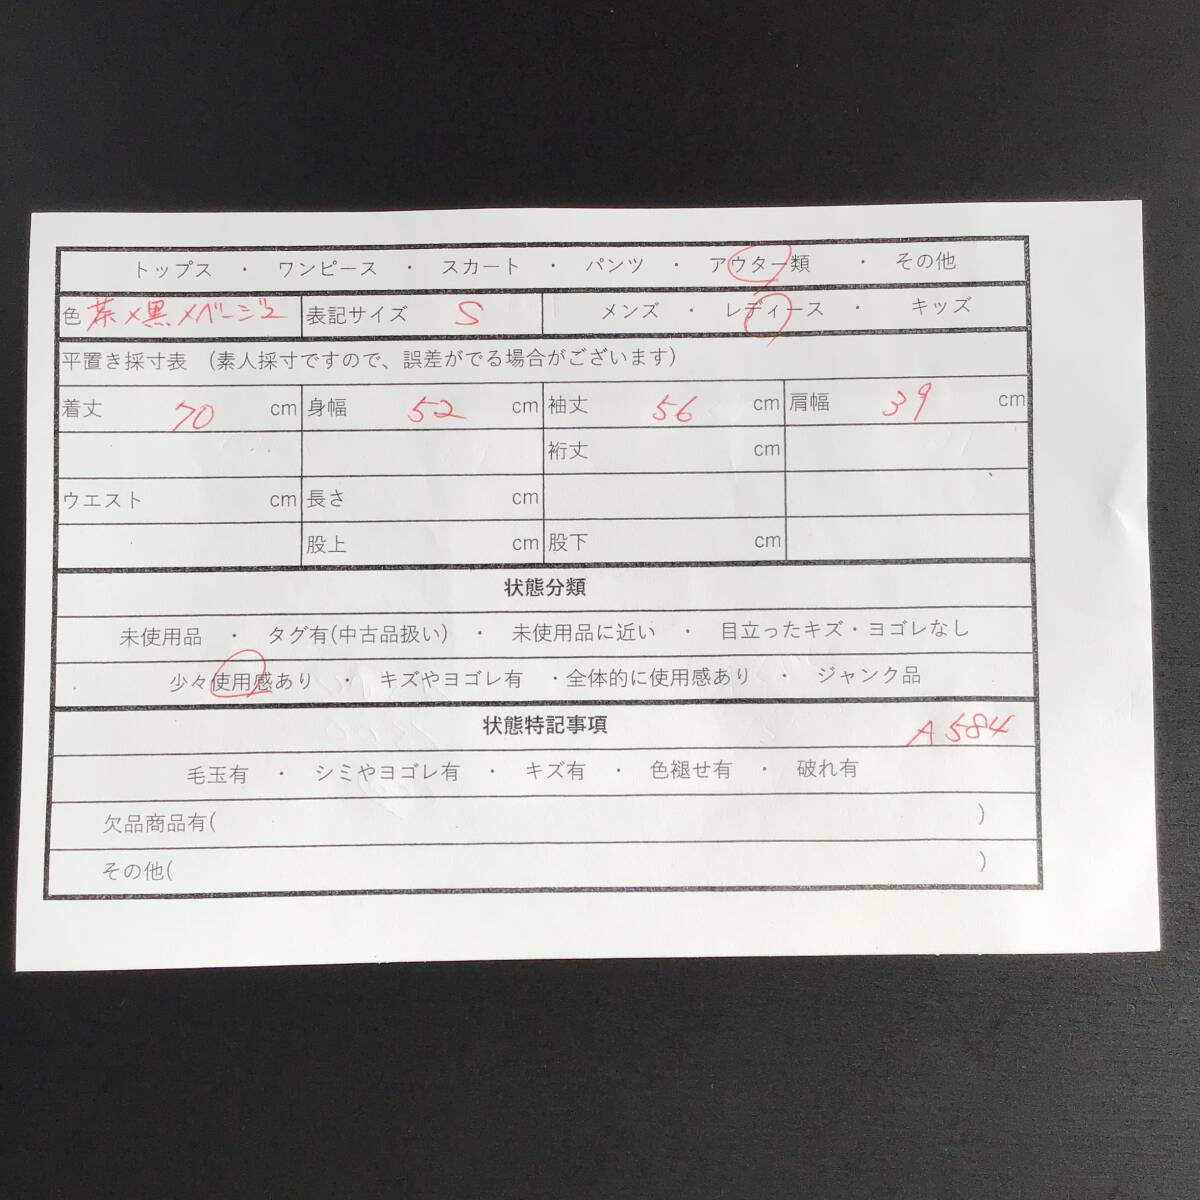 トップス ・ ワンピース ・ スカート ・ パンツ ・ アウター類 ・ その他
色 茶×黒×ベージュ 表記サイズ S メンズ ・ レディース ・ キッズ
平置き採寸表 (素人採寸ですので、誤差がでる場合がございます)
着丈 70 cm 身幅 52 cm 袖丈 56 cm 肩幅 39 cm
裄丈 cm
ウエスト cm 長さ cm
股上 cm 股下 cm
状態分類
未使用品 ・ タグ有(中古品扱い) ・ 未使用品に近い ・ 目立ったキズ・ヨゴレなし
少々使用感あり ・ キズやヨゴレ有 ・全体的に使用感あり ・ ジャンク品
状態特記事項 A584
毛玉有 ・ シミやヨゴレ有 ・ キズ有 ・ 色褪せ有 ・ 破れ有
欠品商品有( )
その他( )